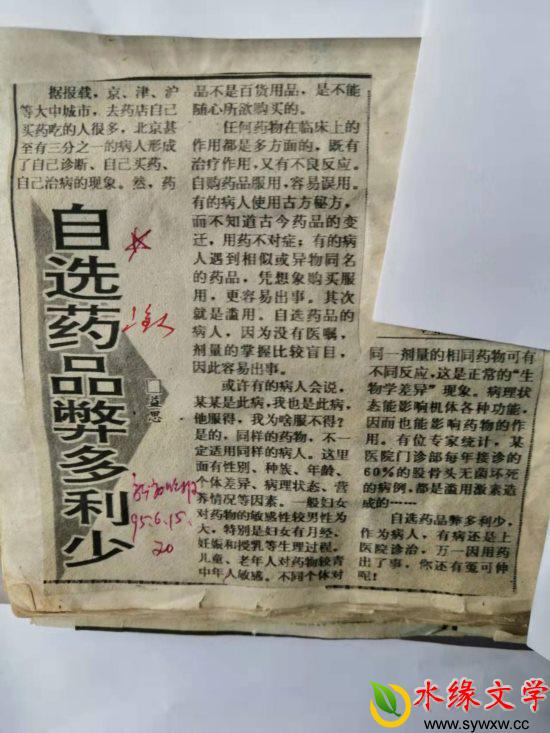 自选药品弊多利少
益思
据报载，京、津、沪
等大中城市，去药店自己
买药吃的人很多，北京甚
至有三分之一的病人形成
了自己诊断、自己买药、
自己治病的现象。然，药
品不是百货用品，是不能
随心所欲购买的。
任何药物在临床上的
作用都是多方面的，既有
治疗作用，又有不良反应。
自购药品服用，容易误用。
有的病人使用古方秘方，
而不知道古今药品的变
迁，用药不对症；有的病
人遇到相似或异物同名
的药品，凭想象购买服
用，更容易出事。其次
就是滥用。自选药品的
病人，因为没有医嘱，
剂量的掌握比较盲目，
因此容易出事。
或许有的病人会说，
某某是此病，我也是此病，
他服得，我为啥服不得？
是的，同样的药物，不一
定适用同样的病人。这里
面有性别、种族、年龄、
个体差异、病理状态、营
养情况等因素。一般妇女
对药物的敏感性较男性为
大，特别是妇女有月经、
妊娠和授乳等生理过程。
儿童、老年人对药物较青
中年人敏感。不同个体对
同一剂量的相同药物可有
不同反应，这是正常的“生
物学差异”现象。病理状
态能影响机体各种功能，
因而也能影响药物的作
用。有位专家统计，某
医院门诊部每年接诊的
60%的股骨头无菌坏死
的病例，都是滥用激素造
成的——
自选药品弊多利少，
作为病人，有病还是上
医院诊治，万一因用药
出了事，你还有冤可伸
呢！
95.6.15.
20
水缘文学
www.sywxw.com